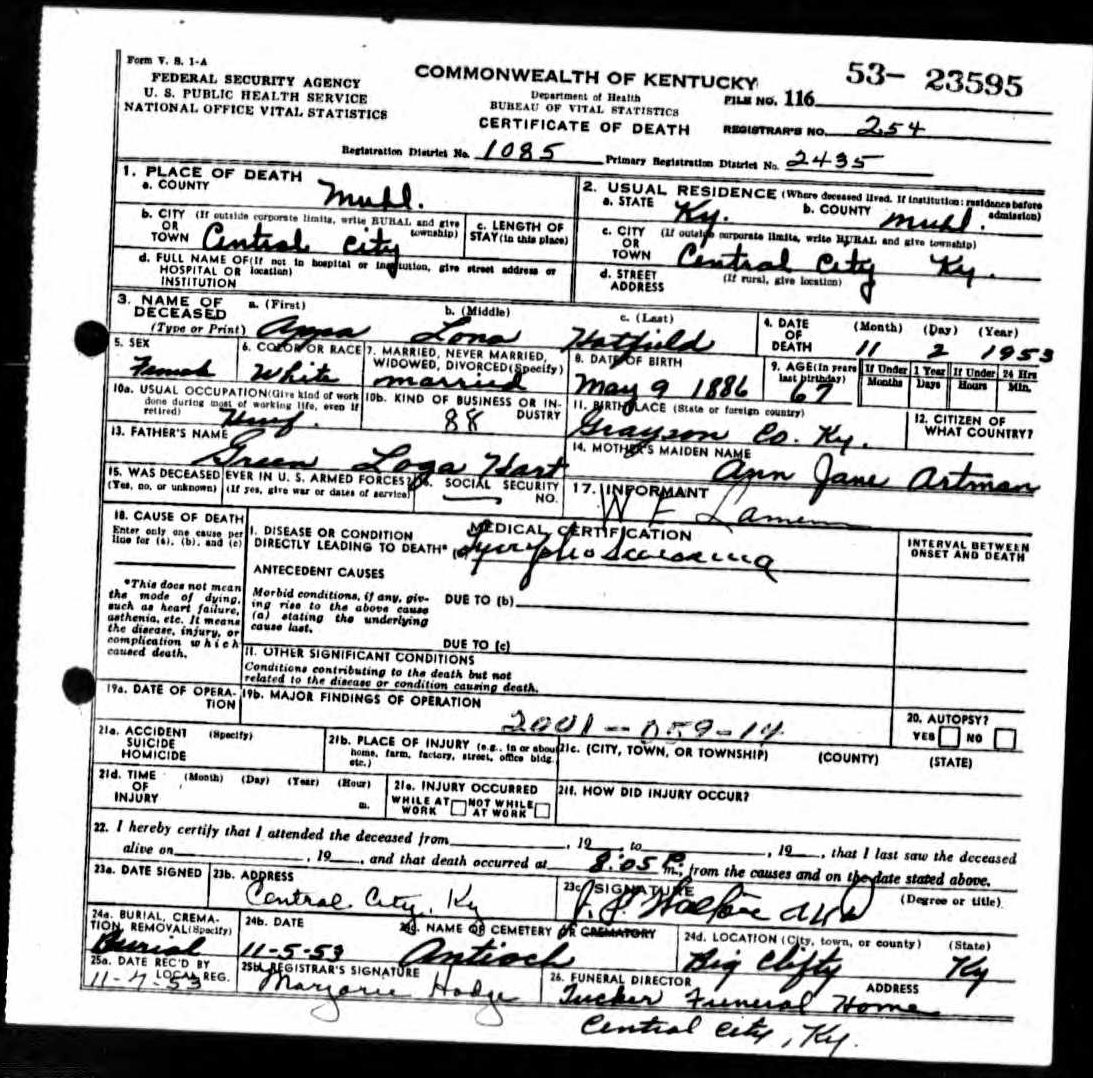 Form V. S. 1-A
FEDERAL SECURITY AGENCY
U. S. PUBLIC HEALTH SERVICE
NATIONAL OFFICE VITAL STATISTICS
COMMONWEALTH OF KENTUCKY
Department of Health
BUREAU OF VITAL STATISTICS
CERTIFICATE OF DEATH
53- 23595
FILE NO. 116
REGISTRAR'S NO. 254
Registration District No. 1085 Primary Registration District No. 2435
1. PLACE OF DEATH
a. COUNTY Muhl.
b. CITY (If outside corporate limits, write RURAL and give township)
OR TOWN Central City
c. LENGTH OF STAY (in this place)
d. FULL NAME OF (If not in hospital or institution, give street address or location)
HOSPITAL OR INSTITUTION
2. USUAL RESIDENCE (Where deceased lived. If institution: residence before admission)
a. STATE Ky. b. COUNTY Muhl.
c. CITY (If outside corporate limits, write RURAL and give township)
OR TOWN Central City Ky.
d. STREET ADDRESS (If rural, give location)
3. NAME OF DECEASED (Type or Print) a. (First) b. (Middle) c. (Last)
Anna Lona Hatfield
4. DATE OF DEATH (Month) (Day) (Year)
11 2 1953
5. SEX
Female
6. COLOR OR RACE
White
7. MARRIED, NEVER MARRIED, WIDOWED, DIVORCED (Specify)
married
8. DATE OF BIRTH
May 9 1886
9. AGE (In years last birthday)
67
If Under 1 Year Months Days
If Under 24 Hrs Hours Min.
10a. USUAL OCCUPATION (Give kind of work done during most of working life, even if retired)
10b. KIND OF BUSINESS OR INDUSTRY
88
11. BIRTHPLACE (State or foreign country)
Grayson Co. Ky.
12. CITIZEN OF WHAT COUNTRY?
13. FATHER'S NAME
Green Hart
14. MOTHER'S MAIDEN NAME
Ann Jane Artman
15. WAS DECEASED EVER IN U. S. ARMED FORCES?
(Yes, no, or unknown) (If yes, give war or dates of service)
16. SOCIAL SECURITY NO.
17. INFORMANT
W
18. CAUSE OF DEATH
Enter only one cause per line for (a), (b), and (c)
*This does not mean the mode of dying, such as heart failure, asthenia, etc. It means the disease, injury, or complication which caused death.
MEDICAL CERTIFICATION
I. DISEASE OR CONDITION DIRECTLY LEADING TO DEATH* (a)
ANTECEDENT CAUSES
Morbid conditions, if any, giving rise to the above cause (a) stating the underlying cause last.
DUE TO (b)
DUE TO (c)
II. OTHER SIGNIFICANT CONDITIONS
Conditions contributing to the death but not related to the disease or condition causing death.
INTERVAL BETWEEN ONSET AND DEATH
19a. DATE OF OPERATION
19b. MAJOR FINDINGS OF OPERATION
2001--059-14
20. AUTOPSY?
YES NO
21a. ACCIDENT SUICIDE HOMICIDE (Specify)
21b. PLACE OF INJURY (e.g., in or about home, farm, factory, street, office bldg. etc.)
21c. (CITY, TOWN, OR TOWNSHIP) (COUNTY) (STATE)
21d. TIME OF INJURY (Month) (Day) (Year) (Hour) m.
21e. INJURY OCCURRED
WHILE AT WORK NOT WHILE AT WORK
21f. HOW DID INJURY OCCUR?
22. I hereby certify that I attended the deceased from , 19 , to , 19 , that I last saw the deceased
alive on , 19 , and that death occurred at 8:05 P. m., from the causes and on the date stated above.
23a. DATE SIGNED
23b. ADDRESS
Central City, Ky
23c. SIGNATURE (Degree or title)
24a. BURIAL, CREMATION, REMOVAL (Specify)
Burial
24b. DATE
11-5-53
24c. NAME OF CEMETERY OR CREMATORY
Antioch
24d. LOCATION (City, town, or county) (State)
Big Clifty Ky
25a. DATE REC'D BY LOCAL REG.
11-7-53
25b. REGISTRAR'S SIGNATURE
Marjorie Hodge
26. FUNERAL DIRECTOR ADDRESS
Tucker Funeral Home
Central City, Ky.